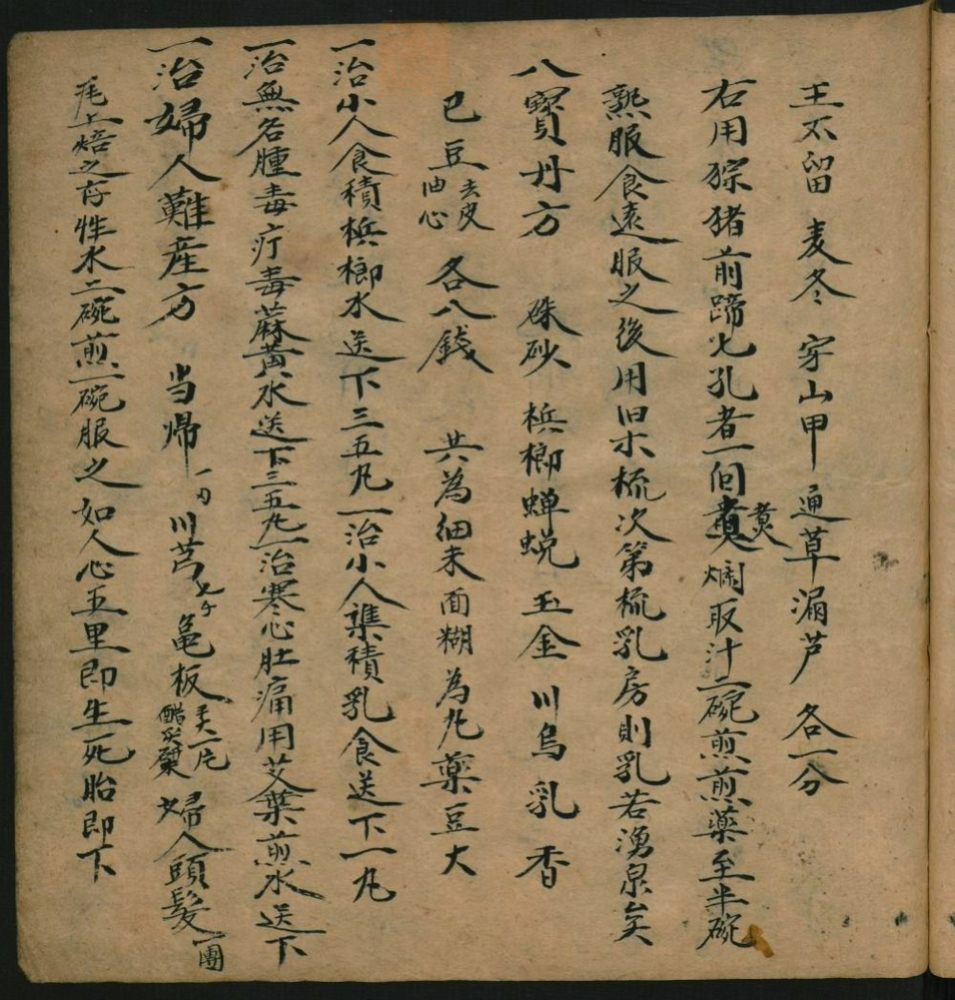 王不留 麦冬 穿山甲 通草 漏芦 各一分
右用猔猪前蹄七孔者一個煑爛取汁二碗煎煎藥至半碗
煑
熟服食遠服之後用旧木梳次第梳乳房則乳若湧泉矣
八寳丹方 硃砂 梹榔 蝉蜕 玉金 川烏 乳香
巴豆去皮油心 各八錢 共為細末面糊為丸菉豆大
一治小人食積梹榔水送下三五丸一治小人 積乳食送下一丸
一治無名腫毒疔毒蔴黄水送下三五丸一治寒心肚痛用艾葉煎水送下
一治婦人難産方 当帰一 川芎七 亀板 一 醋炙 婦人頭髮一團
 上焙之存性水二碗煎一碗服之如人心五里即生死胎即下